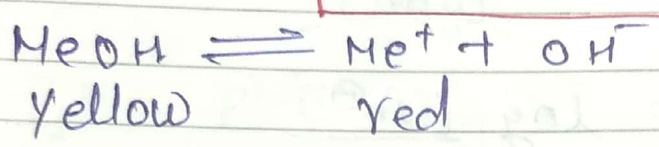 MeOH ⇌ Me⁺ + OH⁻
Yellow red